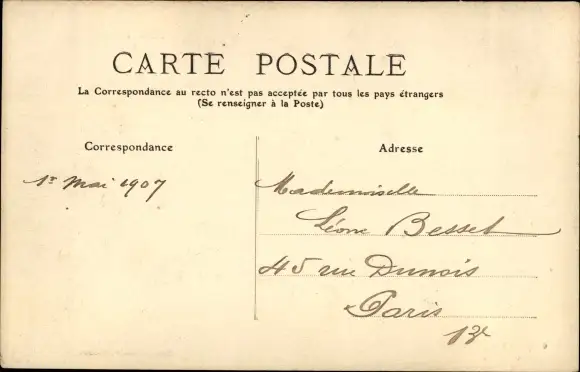 CARTE POSTALE
La Correspondance au recto n'est pas acceptée par tous les pays étrangers
(Se renseigner à la Poste)
Correspondance
Adresse
1er mai 1907
Mademoiselle
Léone Besset
45 rue Dunois
Paris
13e